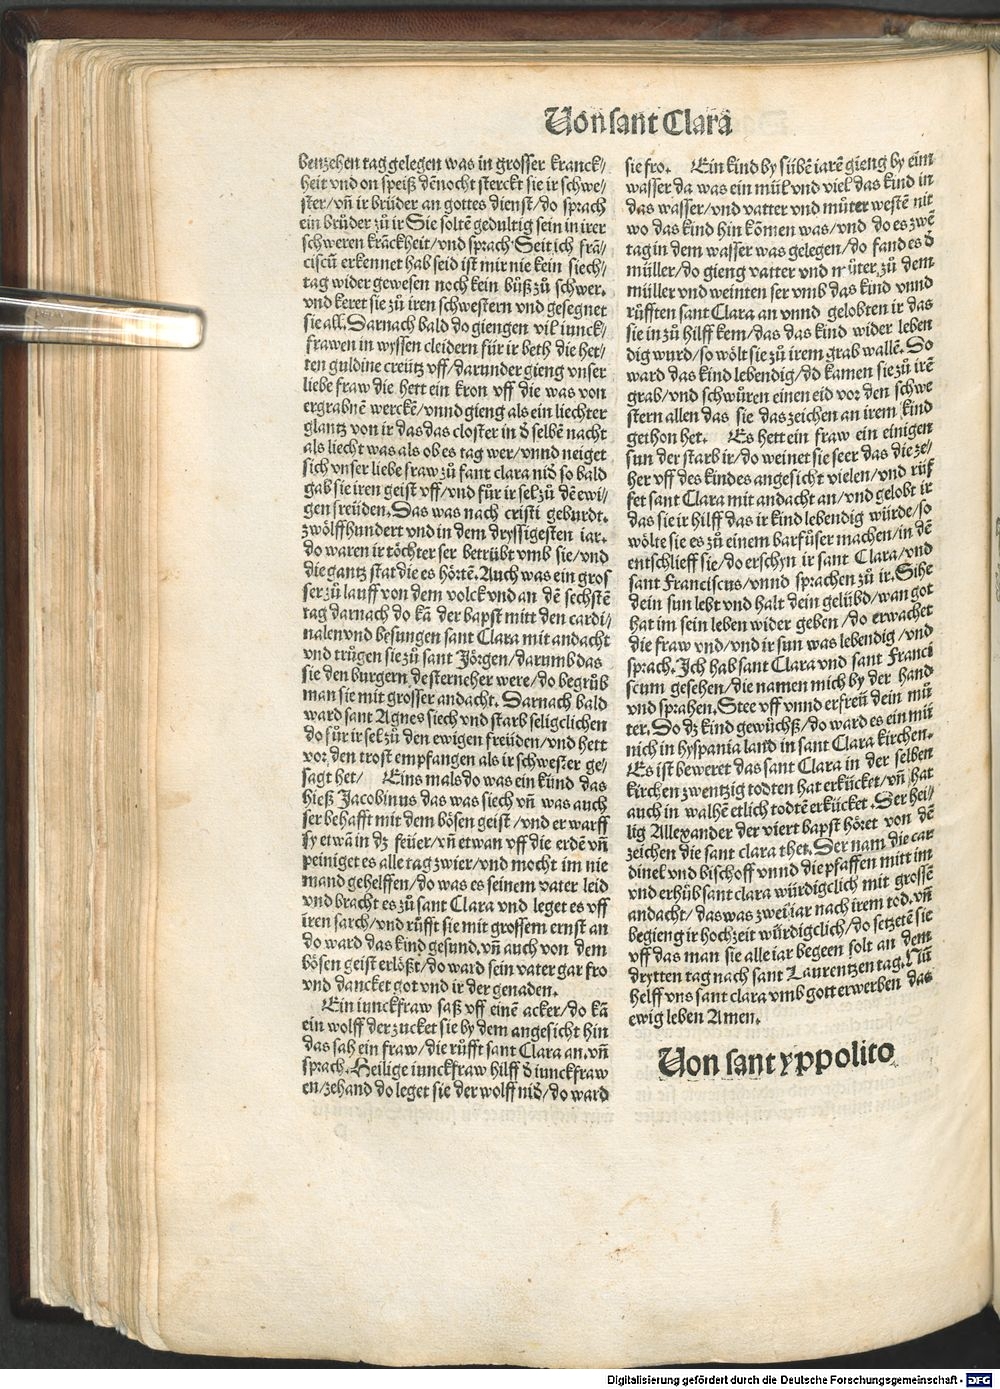 Von sant Clara
benzehen tag gelegen was in grosser kranck/
heit vnd on speiß dēnocht sterckt sie ir schwe/
ster/vn̄ ir brüder an gottes dienst/do sprach
ein brůder zů ir Sie soltē gedultig sein in irer
schweren krāckheit/vnd sprach Seit ich frā/
ciscū erkennet hab seid ist mir nie kein siech/
tag wider gewesen noch kein bůß zů schwer.
vnd keret sie zů iren schwestern vnd gesegnet
sie all. Darnach bald do giengen vil iunck/
frawen in wyssen cleidern für ir beth die het/
ten guldine creütz vff/darunder gieng vnser
liebe fraw die hett ein kron vff die was von
ergrabnē werckē/vnnd gieng als ein liechter
glantz von ir das das closter in d̄ selbē nacht
als liecht was als ob es tag wer/vnnd neiget
sich vnser liebe fraw zů sant clara nid̄ so bald
gab sie iren geist vff/vnd für ir sel zů dē ewi/
gen freüden. Das was nach cristi geburdt.
zwölffhundert vnd in dem dryssigesten iar.
do waren ir töchter ser betrübt vmb sie/vnd
die gantz stat die es hörtē. Auch was ein gros
ser zů lauff von dem volck vnd an dē sechstē
tag darnach do kā der bapst mitt den cardi/
nalen vnd besungen sant Clara mit andacht
vnd trůgen sie zů sant Jörgen/darumb das
sie den burgern desterneher were/do begrůb
man sie mit grosser andacht. Darnach bald
ward sant Agnes siech vnd starb seligclichen
do für ir sel zů den ewigen freüden/vnd hett
vor den trost empfangen als ir schwester ge/
sagt het/ Eins mals do was ein künd das
hieß Jacobinus das was siech vn̄ was auch
ser behafft mit dem bösen geist/vnd er warff
sy etwā in dz feüer/vn̄ etwan vff die erdē vn̄
peiniget es alle tag zwier/vnd mocht im nie
mand gehelffen/do was es seinem vater leid
vnd bracht es zů sant Clara vnd leget es vff
iren sarch/vnd růfft sie mit grossem ernst an
do ward das kind gesund. vn̄ auch von dem
bösen geist erlößt/do ward sein vater gar fro
vnd dancket got vnd ir der genaden.
Ein iunckfraw saß vff einē acker/do kā
ein wolff der zucket sie by dem angesicht hin
das sah ein fraw/die růfft sant Clara an. vn̄
sprach. Heilige iunckfraw hilff d̄ iunckfraw
en/zehand do leget sie der wolff nid̄/do ward
sie fro. Ein kind by sübē iarē gieng by eim
wasser da was ein mül vnd viel das kind in
das wasser/vnd vatter vnd můter westē nit
wo das kind hin kōmen was/vnd do es zwē
tag in dem wasser was gelegen/do fand es d̄
müller/do gieng vatter vnd můter zů dem
müller vnd weinten ser vmb das kind vnnd
růfften sant Clara an vnnd gelobten ir das
sie in zů hilff kem/das das kind wider leben
dig wurd/so wölt sie zů irem grab wallē. Do
ward das kind lebendig/do kamen sie zů irē
grab/vnd schwůren einen eid vor den schwe
stern allen das sie das zeichen an irem kind
gethon het. Es hett ein fraw ein einigen
sun der starb ir/do weinet sie seer das die ze/
her vff des kindes angesicht vielen/vnd růf
fet sant Clara mit andacht an/vnd gelobt ir
das sie ir hilff das ir kind lebendig würde/so
wölte sie es zů einem barfůser machen/in dē
entschlieff sie/do erschyn ir sant Clara/vnd
sant Franciscus/vnnd sprachen zů ir. Sihe
dein sun lebt vnd halt dein gelübd/wan got
hat im sein leben wider geben/do erwachet
die fraw vnd/vnd ir sun was lebendig/vnd
sprach. Ich hab sant Clara vnd sant Franci
scum gesehen/die namen mich by der hand
vnd sprahen. Stee vff vnnd erfreü dein mů
ter. Do dz kind gewüchß/do ward es ein mü
nich in hyspania land in sant Clara kirchen.
Es ist beweret das sant Clara in der selben
kirchen zwentzig todten hat erkücket/vn̄ hat
auch in walhē etlich todtē erkücket. Der hei/
lig Allexander der viert bapst höret von dē
zeichen die sant clara thet. Der nam die car
dinel vnd bischoff vnnd die pfaffen mitt im
vnd erhůb sant clara würdigclich mit grossē
andacht/das was zwei iar nach irem tod. vn̄
begieng ir hochzeit würdigclich/do setzetē sie
vff das man sie alle iar begeen solt an dem
drytten tag nach sant Laurentzen tag. Nū
helff vns sant clara vmb gott erwerben das
ewig leben Amen.
Von sant yppolito
Digitalisierung gefördert durch die Deutsche Forschungsgemeinschaft - DFG